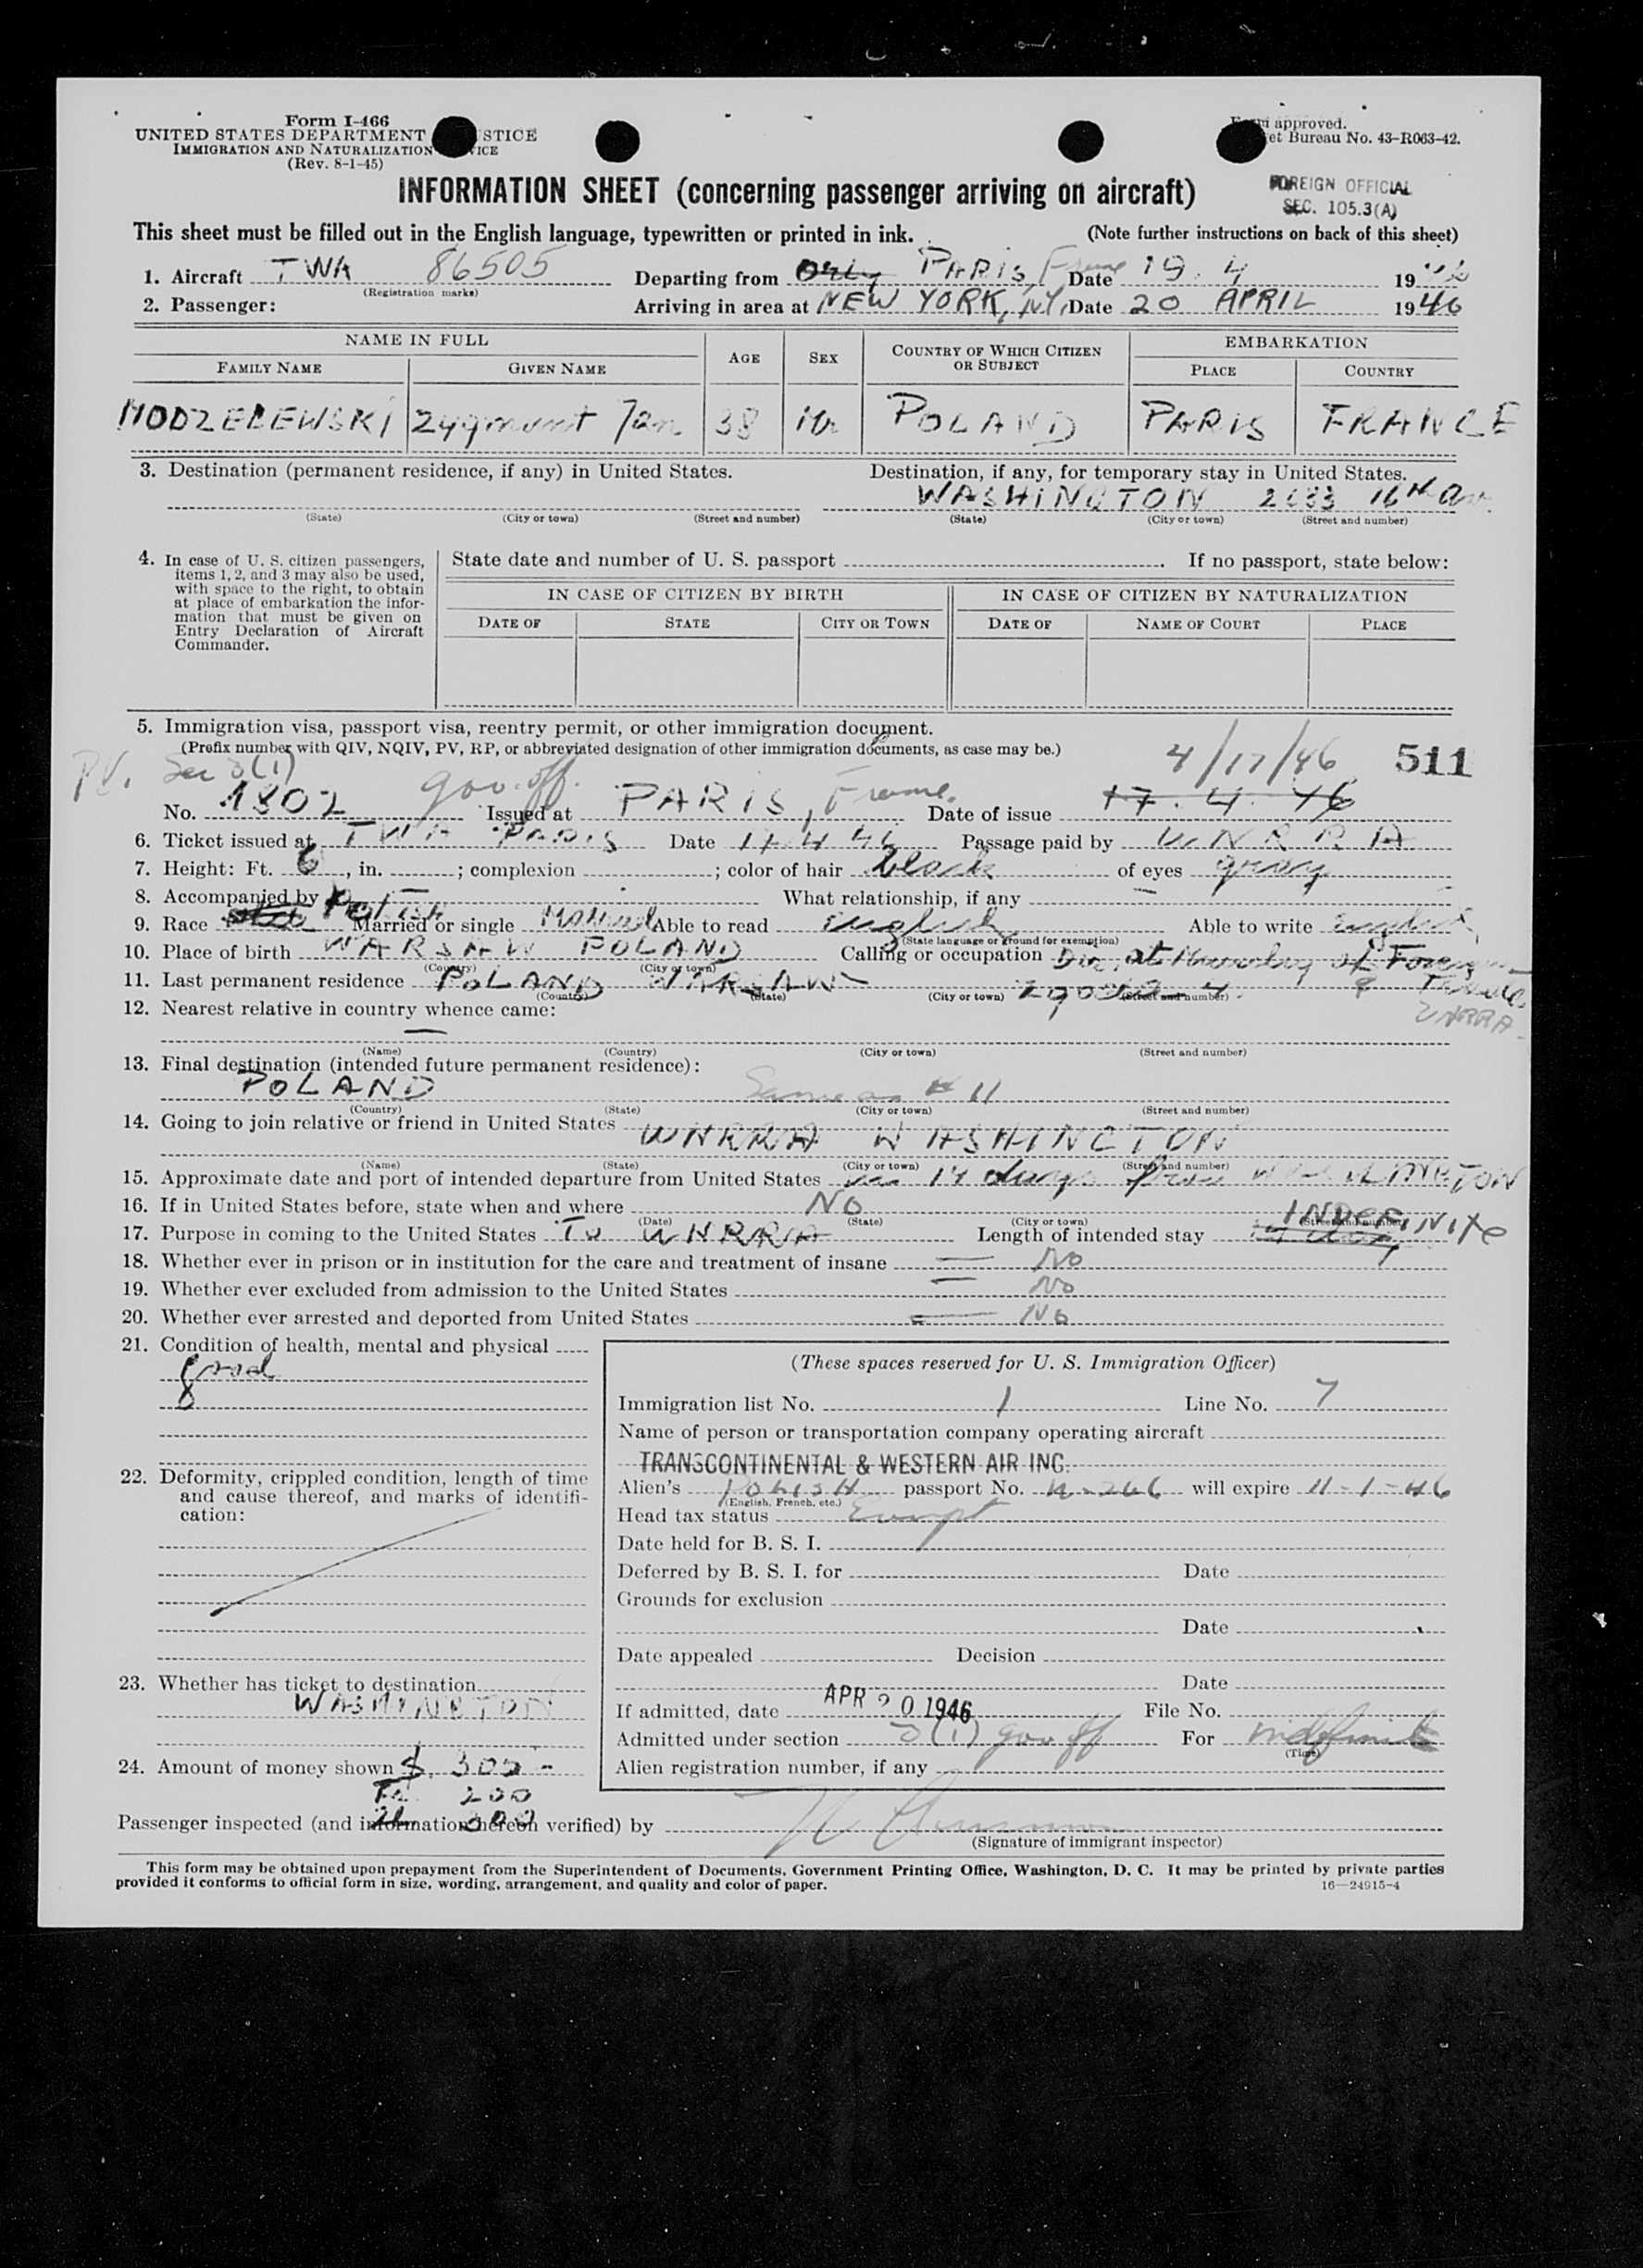 Form I-466
UNITED STATES DEPARTMENT STICE
IMMIGRATION AND NATURALIZATION ICE
(Rev. 8-1-45)
approved.
et Bureau No. 43-R063-42.
INFORMATION SHEET (concerning passenger arriving on aircraft)
FOREIGN OFFICIAL
SEC. 105.3(A)
This sheet must be filled out in the English language, typewritten or printed in ink. (Note further instructions on back of this sheet)
1. Aircraft TWA 86505 Departing from Orly PARIS, Date 19. 4 19
(Registration marks)
2. Passenger: Arriving in area at NEW YORK, NY, Date 20 APRIL 1946
NAME IN FULL AGE SEX COUNTRY OF WHICH CITIZEN OR SUBJECT EMBARKATION
FAMILY NAME GIVEN NAME PLACE COUNTRY
MODZELEWSKI Zygmunt Jan 38 POLAND PARIS FRANCE
3. Destination (permanent residence, if any) in United States. Destination, if any, for temporary stay in United States.
WASHINGTON 16th
(State) (City or town) (Street and number) (State) (City or town) (Street and number)
4. In case of U. S. citizen passengers, items 1, 2, and 3 may also be used, with space to the right, to obtain at place of embarkation the information that must be given on Entry Declaration of Aircraft Commander.
State date and number of U. S. passport If no passport, state below:
IN CASE OF CITIZEN BY BIRTH IN CASE OF CITIZEN BY NATURALIZATION
DATE OF STATE CITY OR TOWN DATE OF NAME OF COURT PLACE
5. Immigration visa, passport visa, reentry permit, or other immigration document.
(Prefix number with QIV, NQIV, PV, RP, or abbreviated designation of other immigration documents, as case may be.)
4/17/46 511
PV. Sec 3(1) gov. off.
No. 1802 Issued at PARIS, Date of issue 17. 4. 46
6. Ticket issued at TWA PARIS Date 17 4 46 Passage paid by UNRRA
7. Height: Ft. 6, in. ; complexion ; color of hair black of eyes gray
8. Accompanied by What relationship, if any —
9. Race Polish Married or single Married Able to read english Able to write english
(State language or ground for exemption)
10. Place of birth WARSAW POLAND Calling or occupation Dir, at of Foreign Trade
(Country) (City or town)
UNRRA
11. Last permanent residence POLAND WARSAW
(Country) (State) (City or town) (Street and number)
12. Nearest relative in country whence came:
—
(Name) (Country) (City or town) (Street and number)
13. Final destination (intended future permanent residence):
POLAND Same as # 11
(Country) (State) (City or town) (Street and number)
14. Going to join relative or friend in United States UNRRA WASHINGTON
(Name) (State) (City or town) (Street and number)
15. Approximate date and port of intended departure from United States 14 days from WASHINGTON
16. If in United States before, state when and where No
(Date) (State) (City or town) (Street and number)
17. Purpose in coming to the United States To UNRRA Length of intended stay INDEFINITE
18. Whether ever in prison or in institution for the care and treatment of insane — No
19. Whether ever excluded from admission to the United States — No
20. Whether ever arrested and deported from United States — No
21. Condition of health, mental and physical
good
22. Deformity, crippled condition, length of time and cause thereof, and marks of identification:
23. Whether has ticket to destination
WASHINGTON
24. Amount of money shown $. 305 -
200
300
(These spaces reserved for U. S. Immigration Officer)
Immigration list No. 1 Line No. 7
Name of person or transportation company operating aircraft
TRANSCONTINENTAL & WESTERN AIR INC.
Alien's POLISH passport No. will expire 11-1-46
(English, French, etc.)
Head tax status Exempt
Date held for B. S. I.
Deferred by B. S. I. for Date
Grounds for exclusion
Date
Date appealed Decision
Date
If admitted, date APR 20 1946 File No.
Admitted under section 3(1) gov off For indefinite
(Time)
Alien registration number, if any
Passenger inspected (and information hereon verified) by
(Signature of immigrant inspector)
This form may be obtained upon prepayment from the Superintendent of Documents, Government Printing Office, Washington, D. C. It may be printed by private parties
provided it conforms to official form in size, wording, arrangement, and quality and color of paper. 16—24915-4